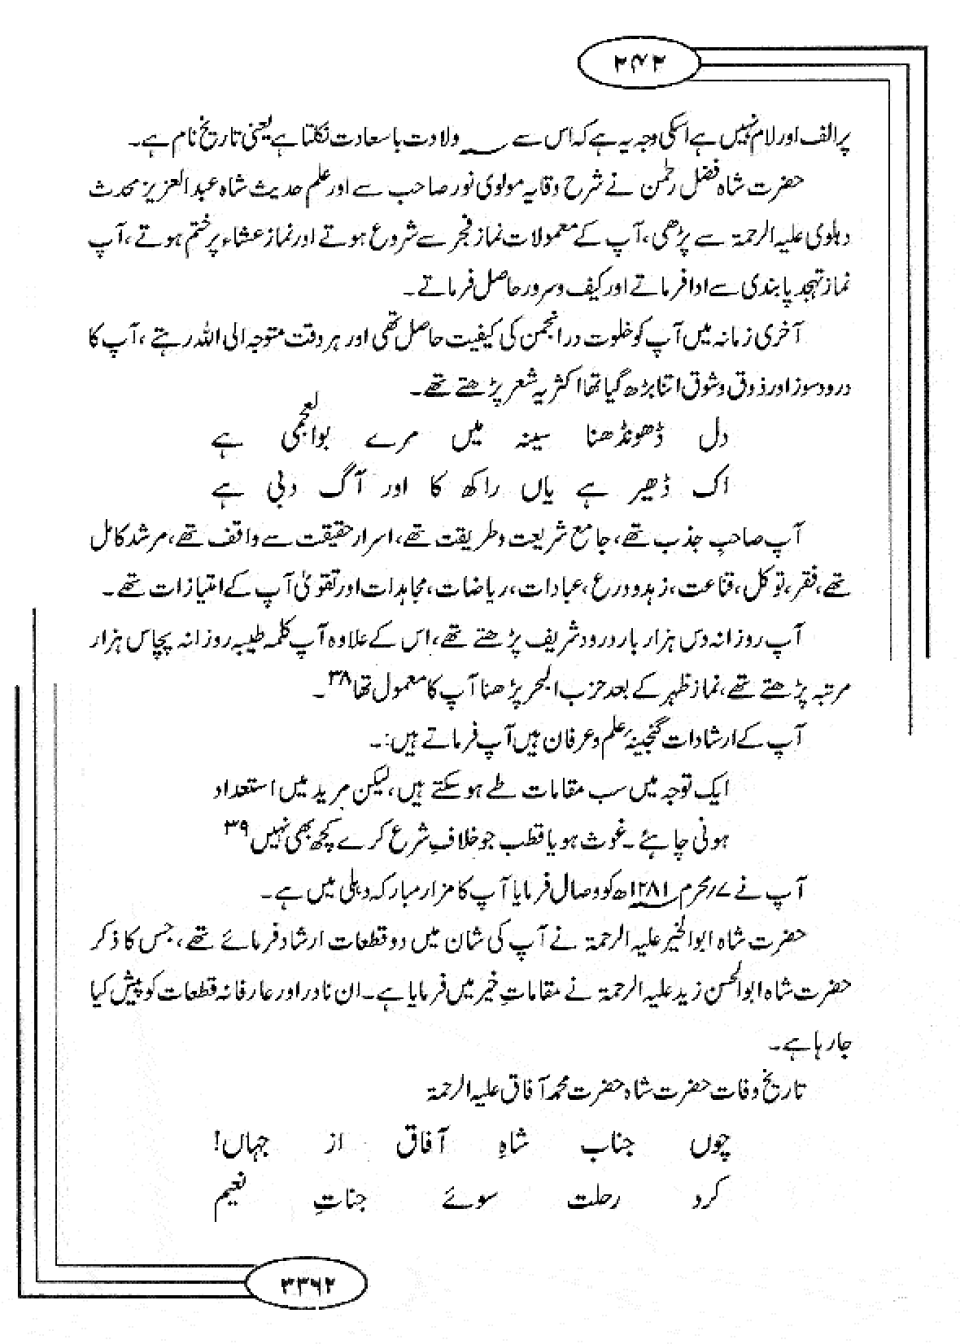 ۲۴۲
پر الف اور لام نہیں ہے اسکی وجہ یہ ہے کہ اس سے ؁ ولادت باسعادت نکلتا ہے یعنی تاریخ نام ہے۔
حضرت شاہ فضل رحمٰن نے شرح وقایہ مولوی نور صاحب سے اور علم حدیث شاہ عبدالعزیز محدث
دہلوی علیہ الرحمۃ سے پڑھی، آپ کے معمولات نماز فجر سے شروع ہوتے اور نماز عشاء پر ختم ہوتے، آپ
نماز تہجد پابندی سے ادا فرماتے اور کیف و سرور حاصل فرماتے۔
آخری زمانہ میں آپ کو خلوت در انجمن کی کیفیت حاصل تھی اور ہر وقت متوجہ الی اللہ رہتے، آپ کا
درود سوز اور ذوق و شوق اتنا بڑھ گیا تھا اکثر یہ شعر پڑھتے تھے۔
دل ڈھونڈھنا سینہ میں مرے بوالعجمی ہے
اک ڈھیر ہے یاں راکھ کا اور آگ دبی ہے
آپ صاحبِ جذب تھے، جامع شریعت و طریقت تھے، اسرار حقیقت سے واقف تھے، مرشد کامل
تھے، فقر، توکل، قناعت، زہد و ورع، عبادات، ریاضات، مجاہدات اور تقویٰ آپ کے امتیازات تھے۔
آپ روزانہ دس ہزار بار درود شریف پڑھتے تھے، اس کے علاوہ آپ کلمہ طیبہ روزانہ پچاس ہزار
مرتبہ پڑھتے تھے، نماز ظہر کے بعد حزب البحر پڑھنا آپ کا معمول تھا ۳۸۔
آپ کے ارشادات گنجینۂ علم و عرفان ہیں آپ فرماتے ہیں:۔
ایک توجہ میں سب مقامات طے ہو سکتے ہیں، لیکن مرید میں استعداد
ہونی چاہئے۔ غوث ہو یا قطب جو خلافِ شرع کرے کچھ بھی نہیں ۳۹
آپ نے ۷/محرم ۱۲۸۱؁ھ کو وصال فرمایا آپ کا مزار مبارکہ دہلی میں ہے۔
حضرت شاہ ابوالخیر علیہ الرحمۃ نے آپ کی شان میں دو قطعات ارشاد فرمائے تھے، جس کا ذکر
حضرت شاہ ابوالحسن زید علیہ الرحمۃ نے مقاماتِ خیر میں فرمایا ہے۔ ان نادر اور عارفانہ قطعات کو پیش کیا
جارہا ہے۔
تاریخ وفات حضرت شاہ حضرت محمد آفاق علیہ الرحمۃ
چوں جناب شاہِ آفاق از جہاں!
کرد رحلت سوئے جناتِ نعیم
۳۳۶۲